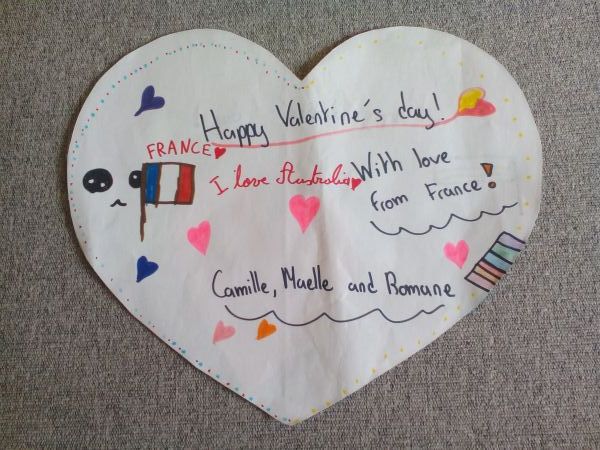 Happy Valentine's day!
FRANCE
I love Australia
With love
from France!
Camille, Maelle and Romane